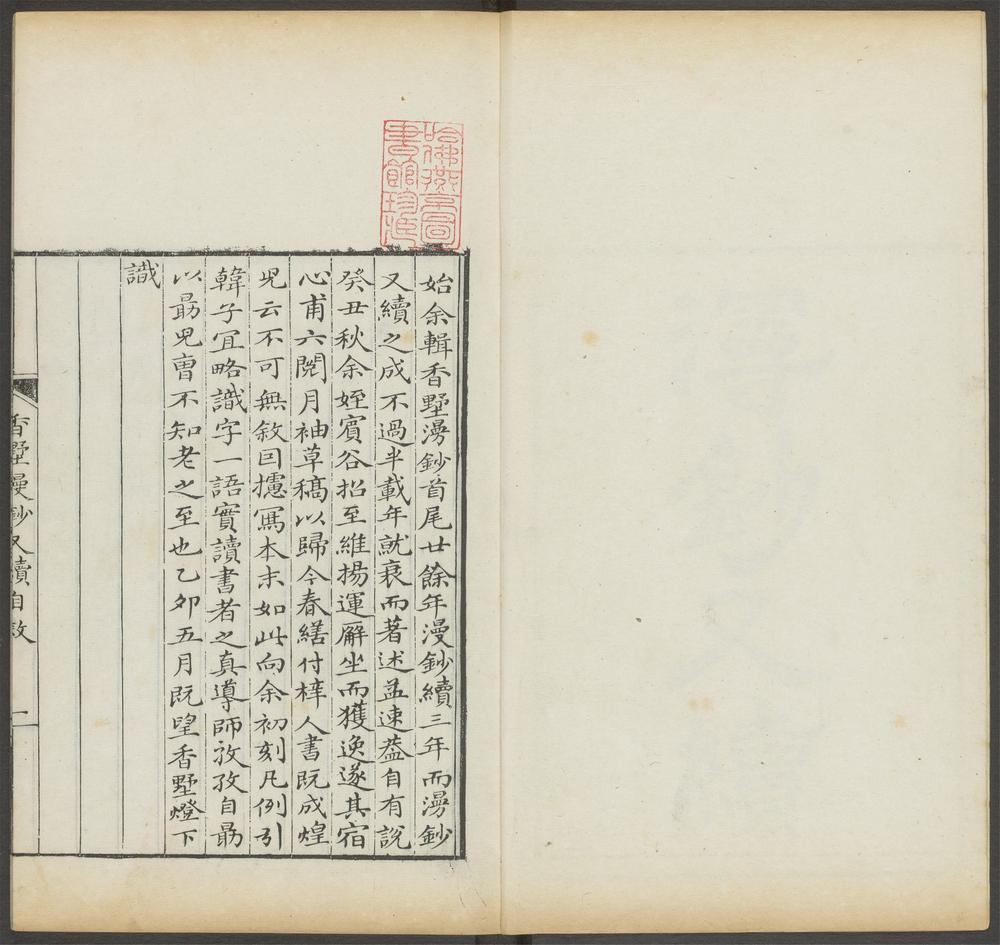 哈佛燕京圖
書館珍藏
始余輯香墅漫鈔首尾廿餘年漫鈔續三年而漫鈔
又續之成不過半載年就衰而著述益速葢自有說
癸丑秋余姪賓谷招至維揚運廨坐而獲逸遂其宿
心甫六閱月袖草稿以歸今春繕付梓人書既成煌
兒云不可無敘因攄寫本末如此向余初刻凡例引
韓子宜略識字一語實讀書者之真導師孜孜自勗
以勗兒曹不知老之至也乙卯五月既望香墅燈下
識
香墅漫鈔又續自敘
一